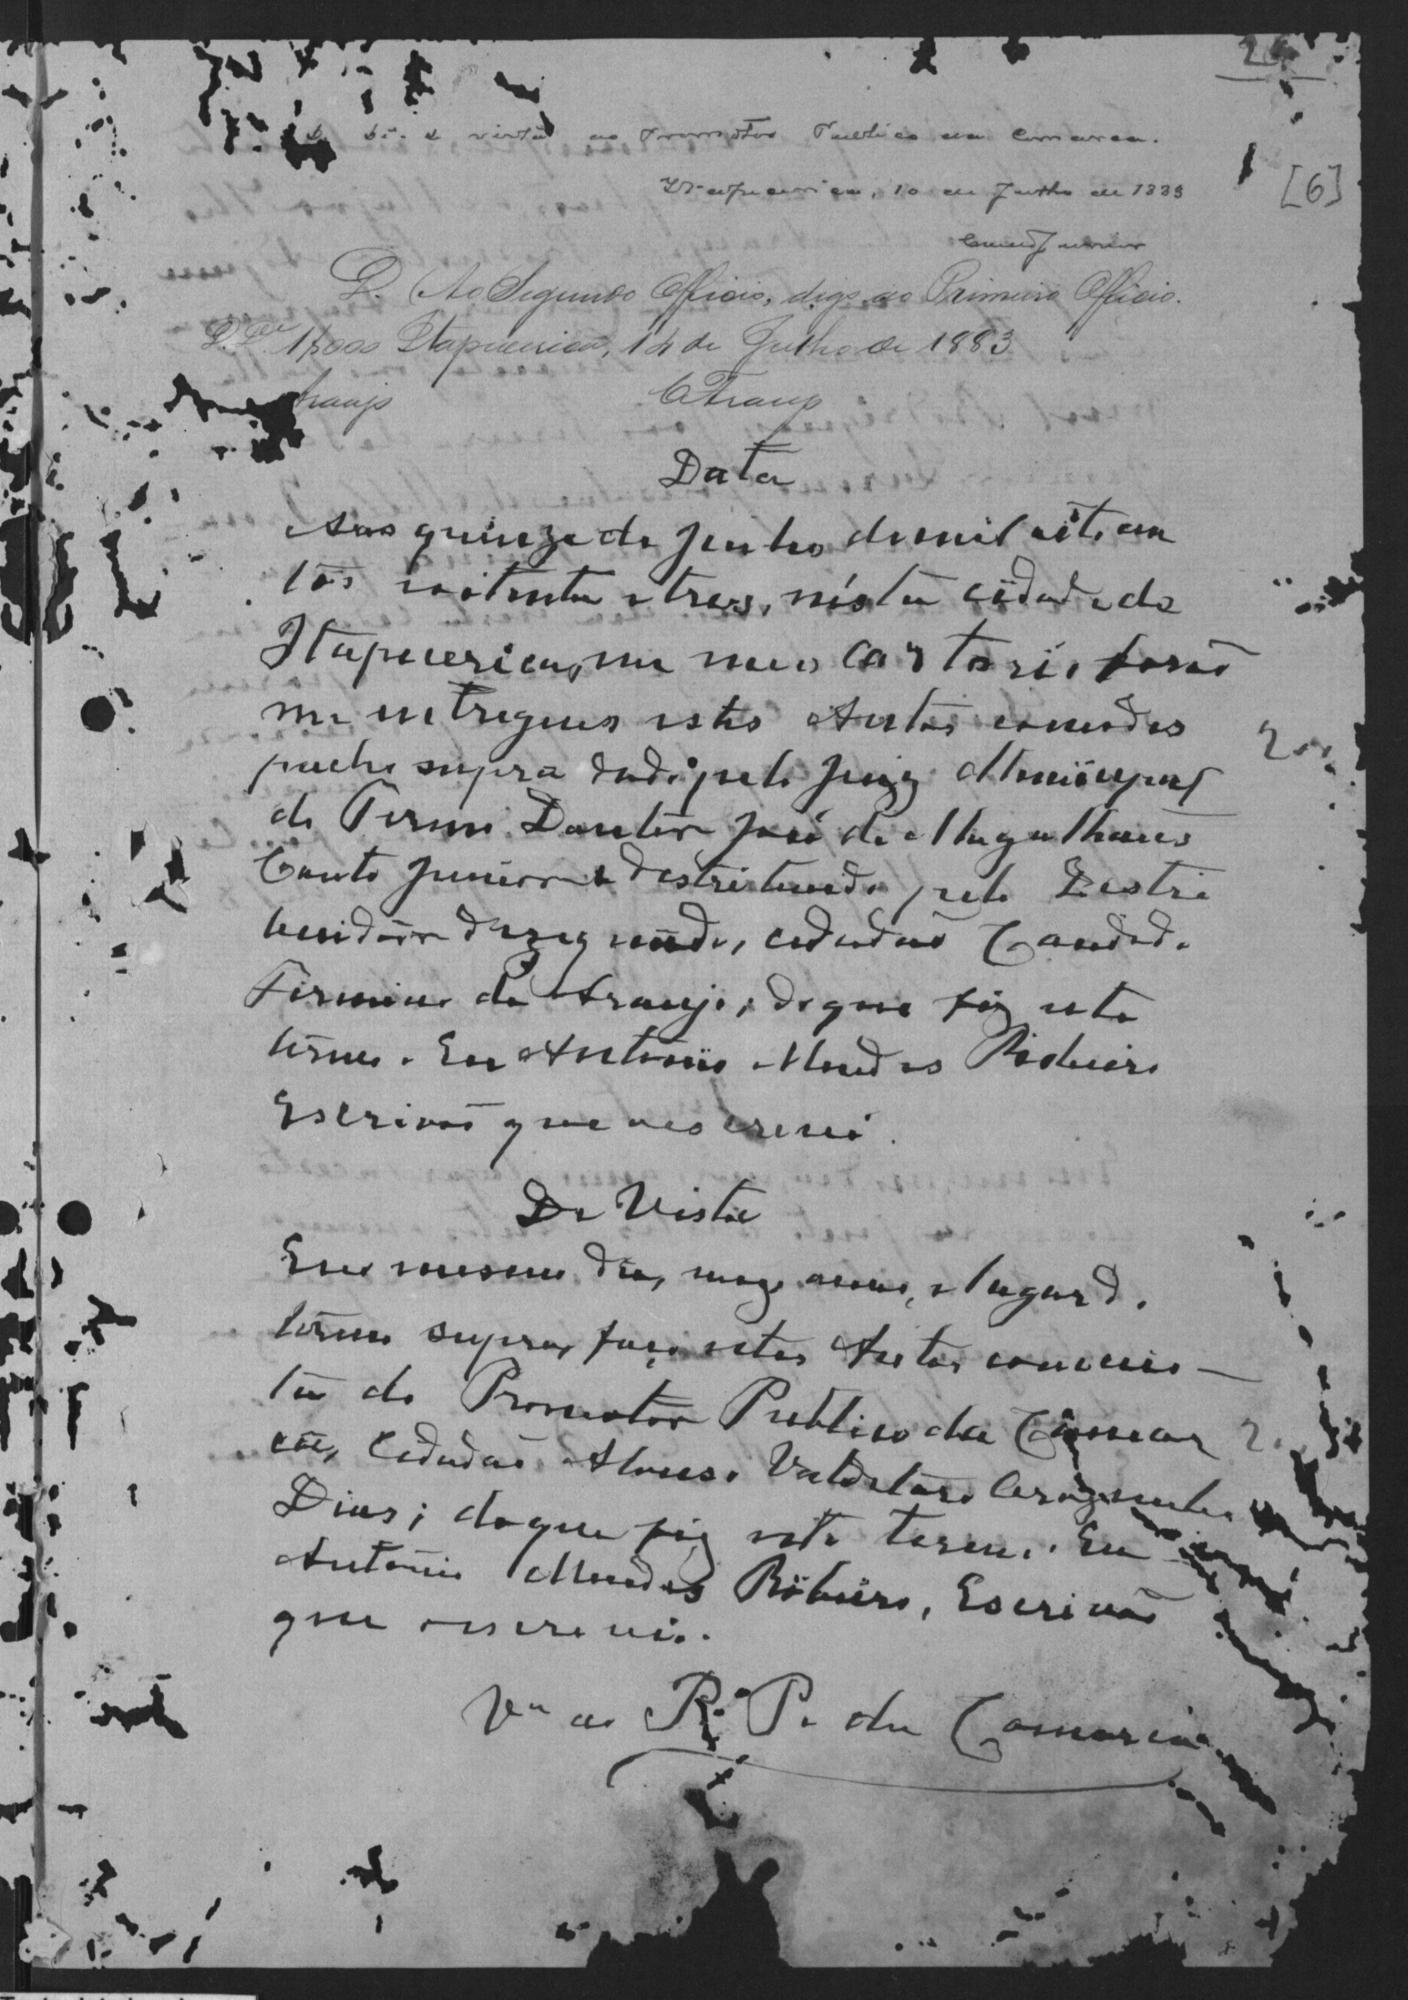 26
D. dê-se vista ao Promotor Publico da Comarca.
Itapecerica, 10 de Julho de 1883
[6]
Couto Junior
D. Ao Segundo Officio, digo ao Primeiro Officio.
1$000 Itapecerica, 14 de Julho de 1883
Araujo CFAraujo
Data
Aos quinze de Julho de mil oitocen
tos e oitenta e tres, nesta cidade de
Itapecerica, em meu Cartorio forão
me entregues estes Autos com o des
pacho supra dado pelo Juiz Municipal
do Termo Doutor José de Magalhães
Couto Junior e destribuido pelo Destri
buidor do segundo, cidadão Candido
Firmino de Araujo; do que fiz este
termo. Eu Antonio Mendes Ribeiro
Escrivão que o escrevi.
De Vista
E no mesmo dia, mez, anno, e lugar do
termo supra, faço estes Autos com vis-
ta do Promotor Publico da Comar
ca, Cidadão Afonso
Dias; do que fiz este termo. Eu
Antonio Mendes Ribeiro, Escrivão
que o escrevi.
Vª ao Pr. P. da Comarca